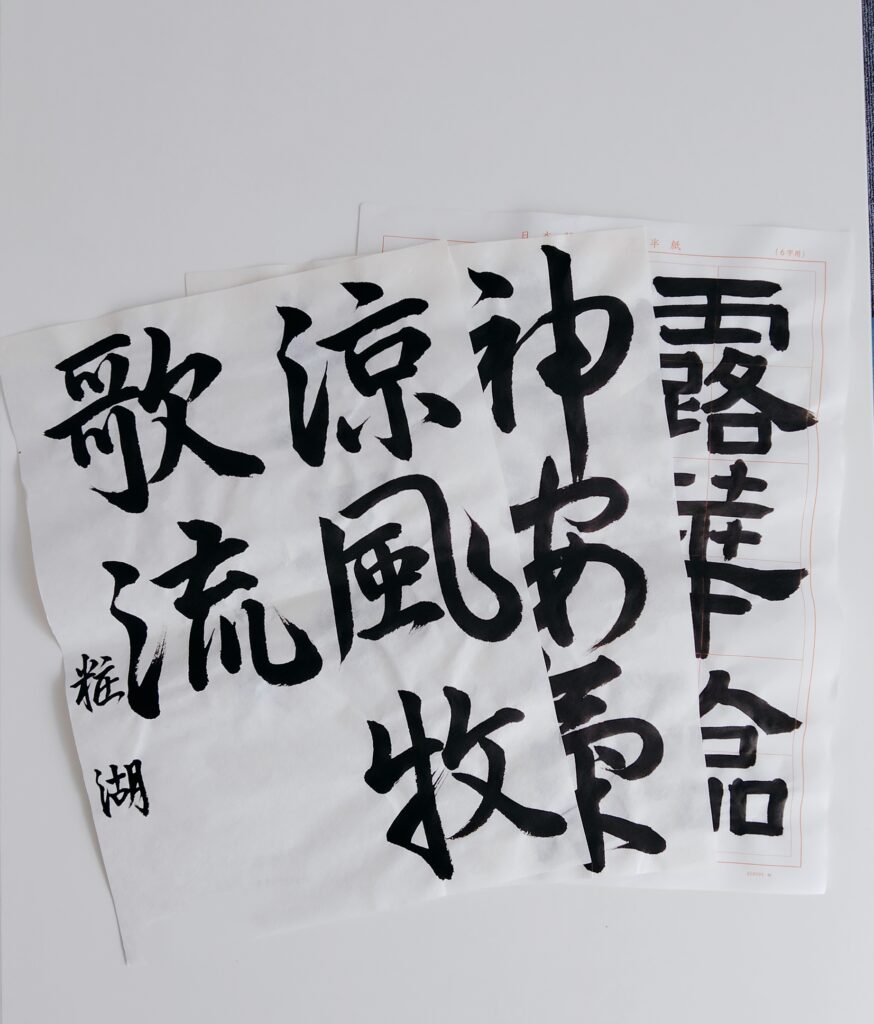 半紙
(6字用)
露華
神安
涼風牧
歌流
粧湖